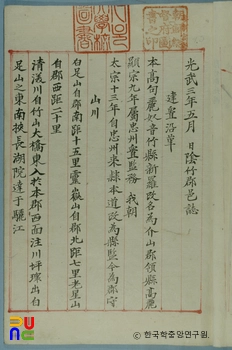 光武三年五月 日陰竹郡邑誌
建置沿革
本高句麗奴音竹縣新羅改名為介山郡領縣高麗
顯宗九年屬忠州置監務 我朝
太宗十三年自忠州來隷本道改為縣監今為郡守
山川
白足山自郡南距十五里靈岳山自郡北距七里老星山
自郡西距二十里
清渼川自竹山大橋東入於本郡西面注川坪環出白
足山之東南挾長湖院達于驪江
© 한국학중앙연구원